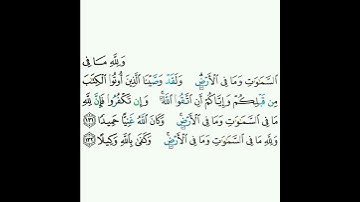 وَلِلَّهِ مَا فِى
السَّمَٰوَٰتِ وَمَا فِى الْأَرْضِ ۗ وَلَقَدْ وَصَّيْنَا الَّذِينَ أُوتُوا الْكِتَٰبَ
مِن قَبْلِكُمْ وَإِيَّاكُمْ أَنِ اتَّقُوا اللَّهَ ۚ وَإِن تَكْفُرُوا فَإِنَّ لِلَّهِ
مَا فِى السَّمَٰوَٰتِ وَمَا فِى الْأَرْضِ ۚ وَكَانَ اللَّهُ غَنِيًّا حَمِيدًا ﴿١٣١﴾
وَلِلَّهِ مَا فِى السَّمَٰوَٰتِ وَمَا فِى الْأَرْضِ ۚ وَكَفَىٰ بِاللَّهِ وَكِيلًا ﴿١٣٢﴾